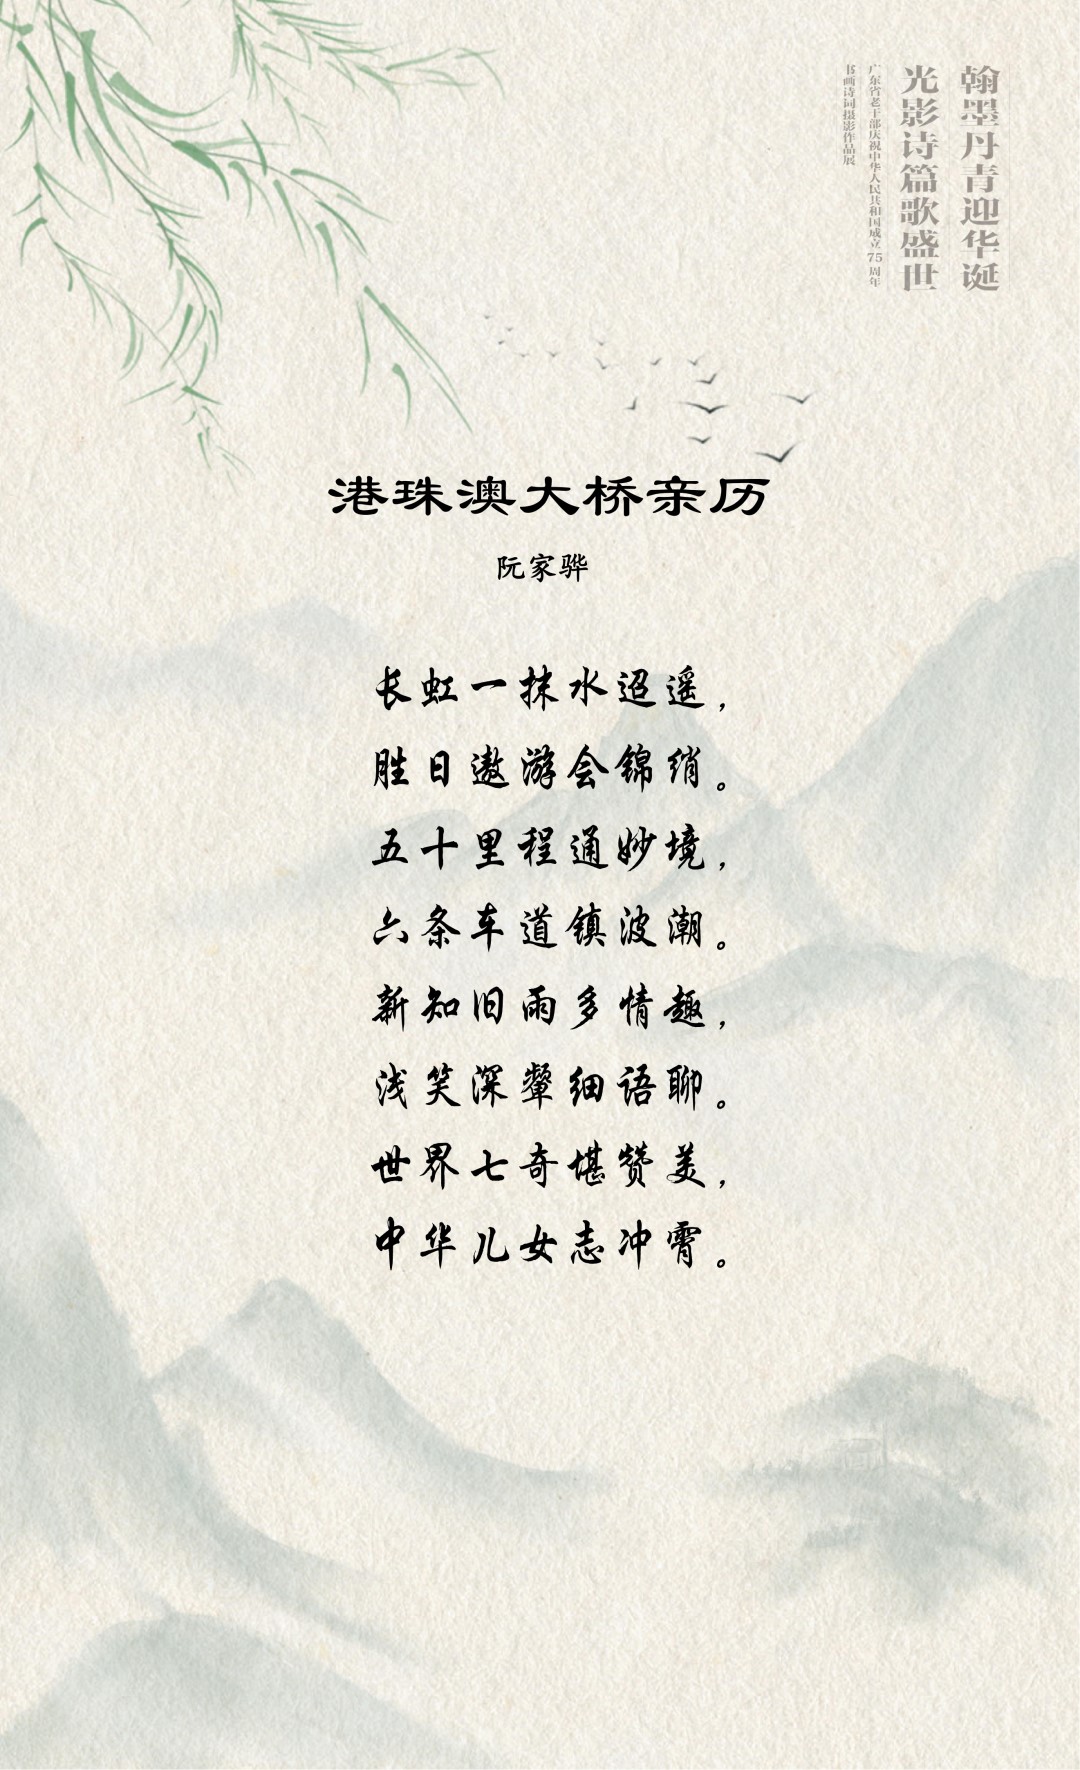 翰墨丹青迎华诞
光影诗篇歌盛世
广东省老干部庆祝中华人民共和国成立75周年
书画诗词摄影作品展
港珠澳大桥亲历
阮家骅
长虹一抹水迢遥，
胜日遨游会锦绡。
五十里程通妙境，
六条车道镇波潮。
新知旧雨多情趣，
浅笑深颦细语聊。
世界七奇堪赞美，
中华儿女志冲霄。